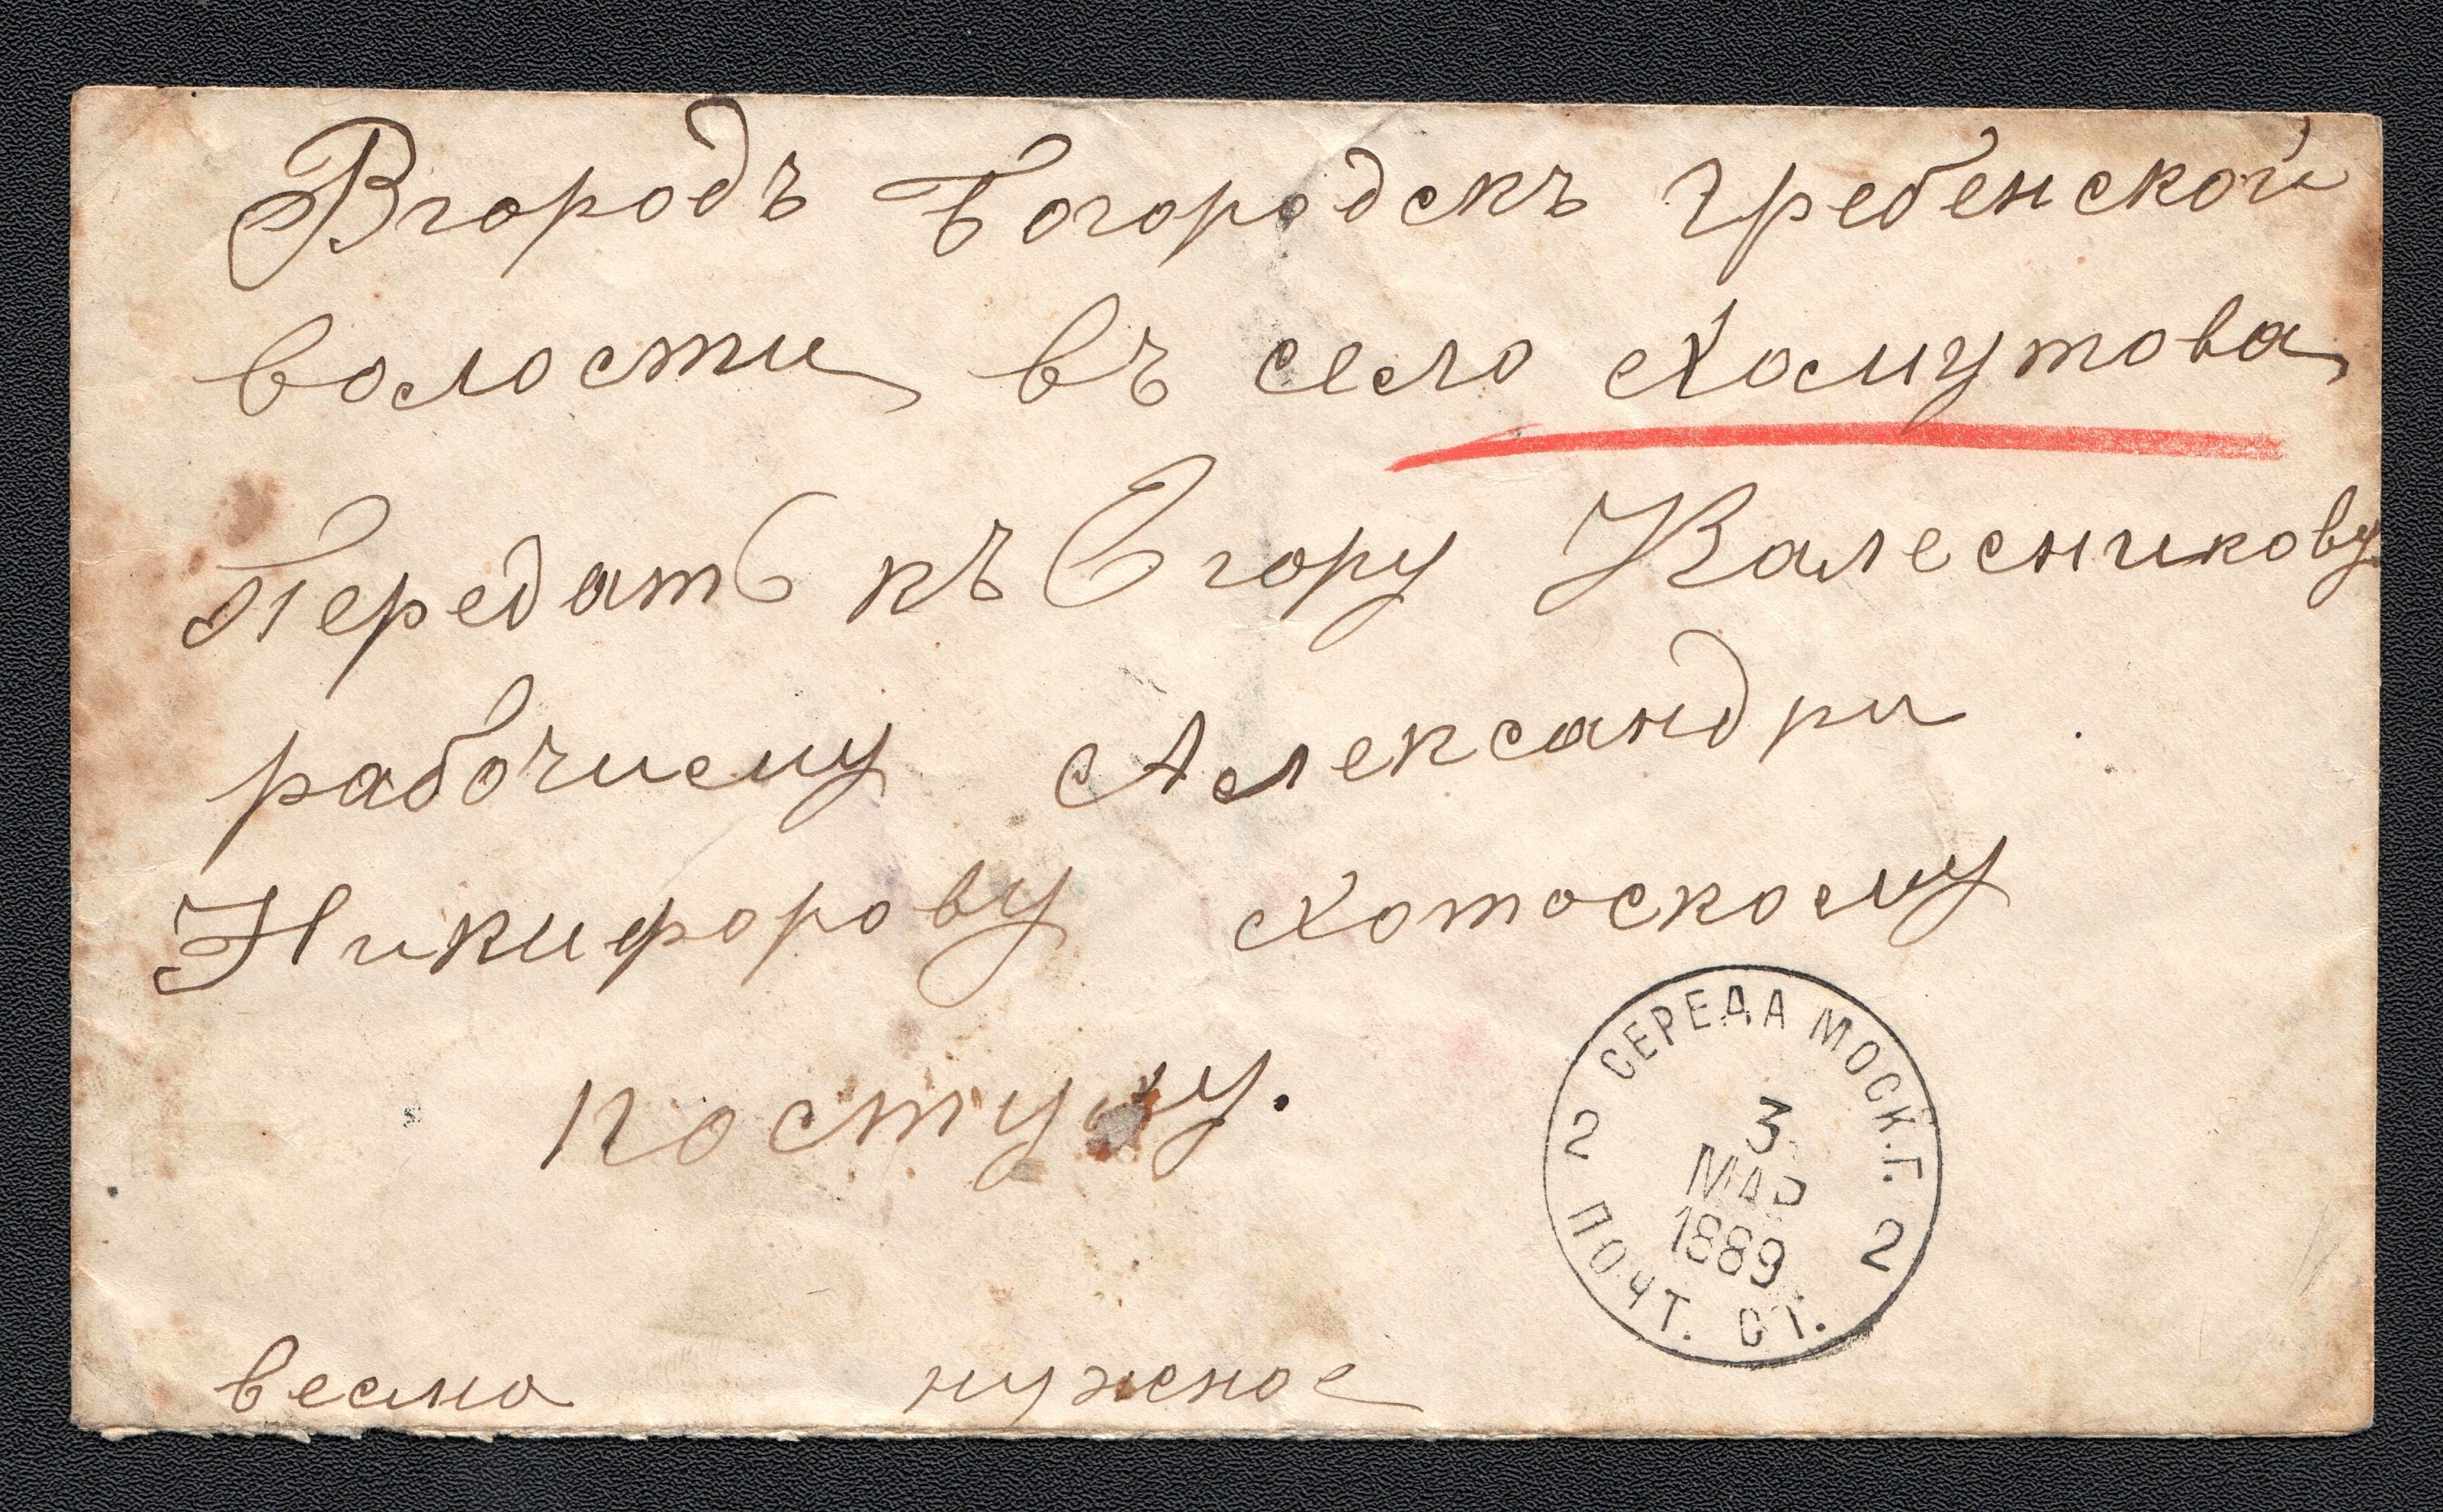 Вгородъ Богородскъ Гребенской
волости въ село Хомутова
Передать къ Егору Калесникову
рабочиему Александри
Никифорову Хотоскому
весма нужное
СЕРЕДА МОСК. Г.
2 2
3
МАР
1889
ПОЧТ. СТ.